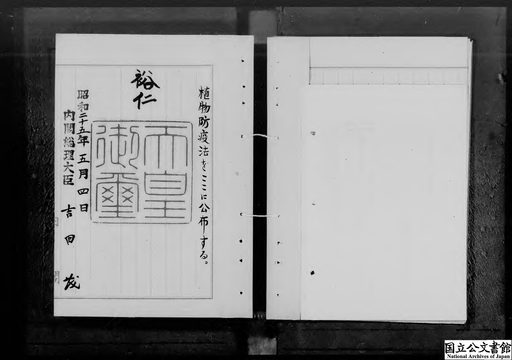 植物防疫法をここに公布する。
裕仁
天皇
御璽
昭和二十五年五月四日
内閣総理大臣 吉田茂
国立公文書館
National Archives of Japan